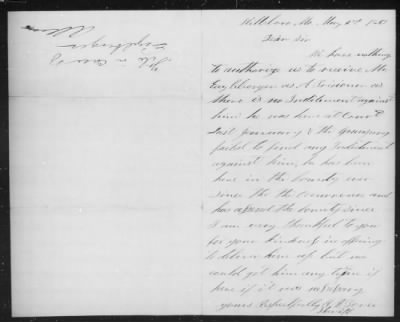 Hillsboro, Mo, May
Dear Sir
We have nothing
to authorize us to receive Mr
as A Prisoner as
there is no Indictment against
him he was here at Court
Last January & the
failed to find any Indictment
against him, he has been
here in the County ever
Since the the and
has the County Since
I am very thankful to you
for your kindness in offering
to deliver him up but we
could get him any time if
here if it was necessary
yours Respectfully
Sheriff
File in Case of